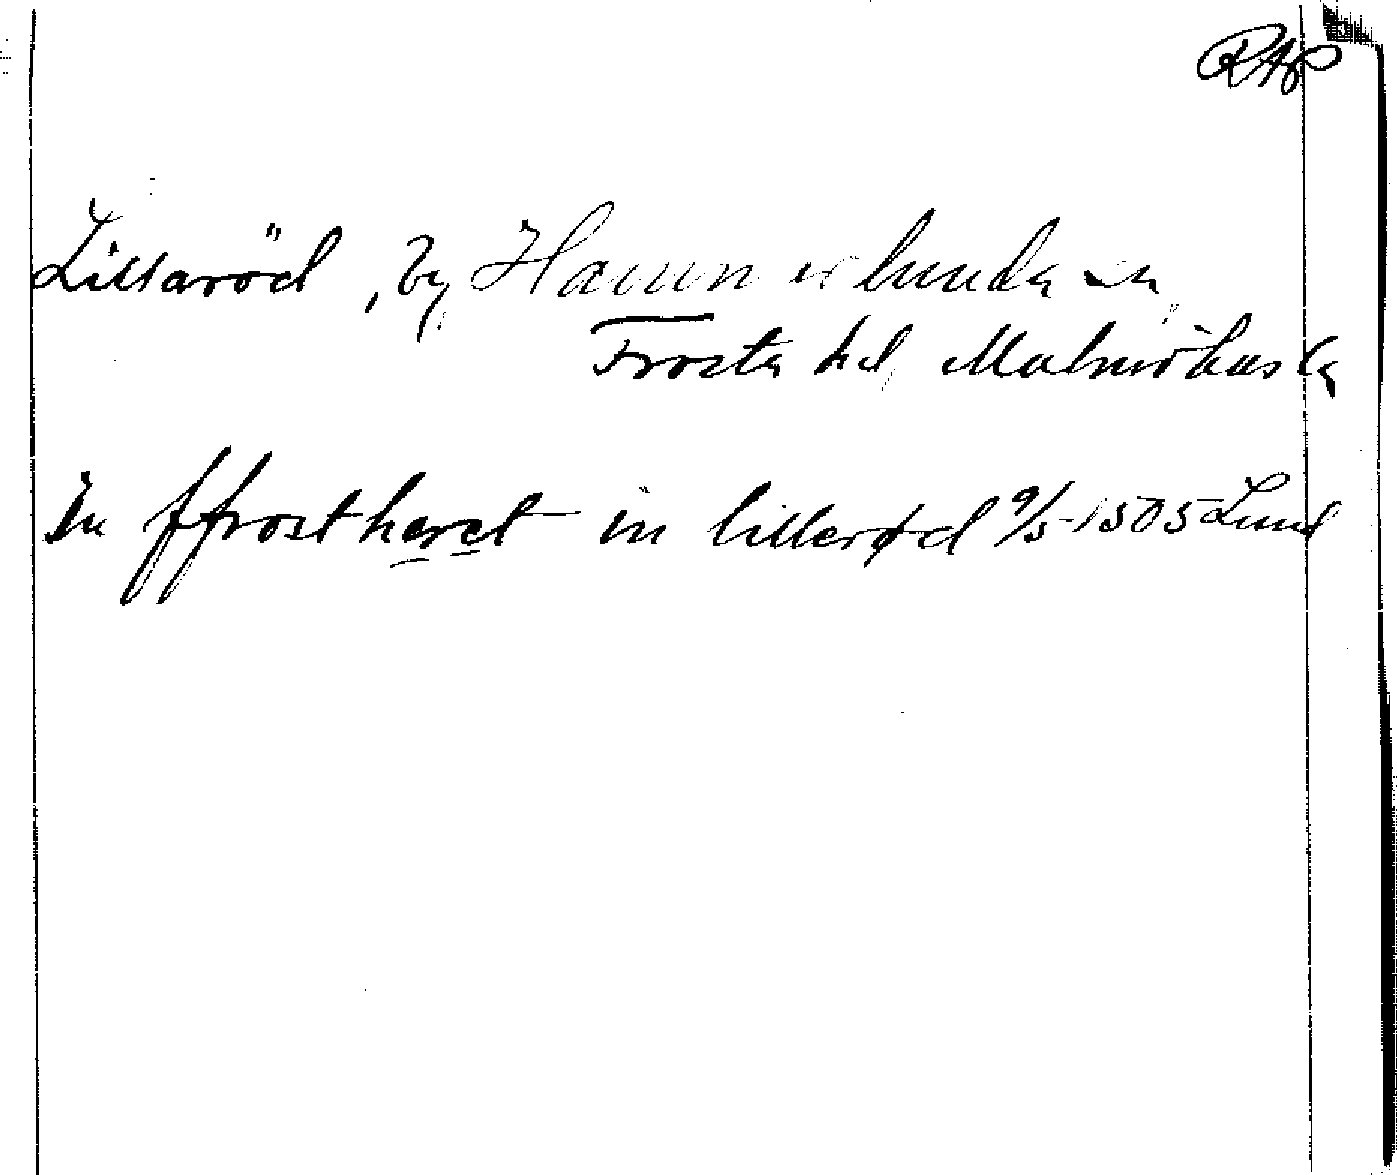 RAP
Lillaröd, by, Hammerlunda sn,
Frosta hd, Malmöhus lä
In ffrostheret in lillerød 9/5-1505 Lund